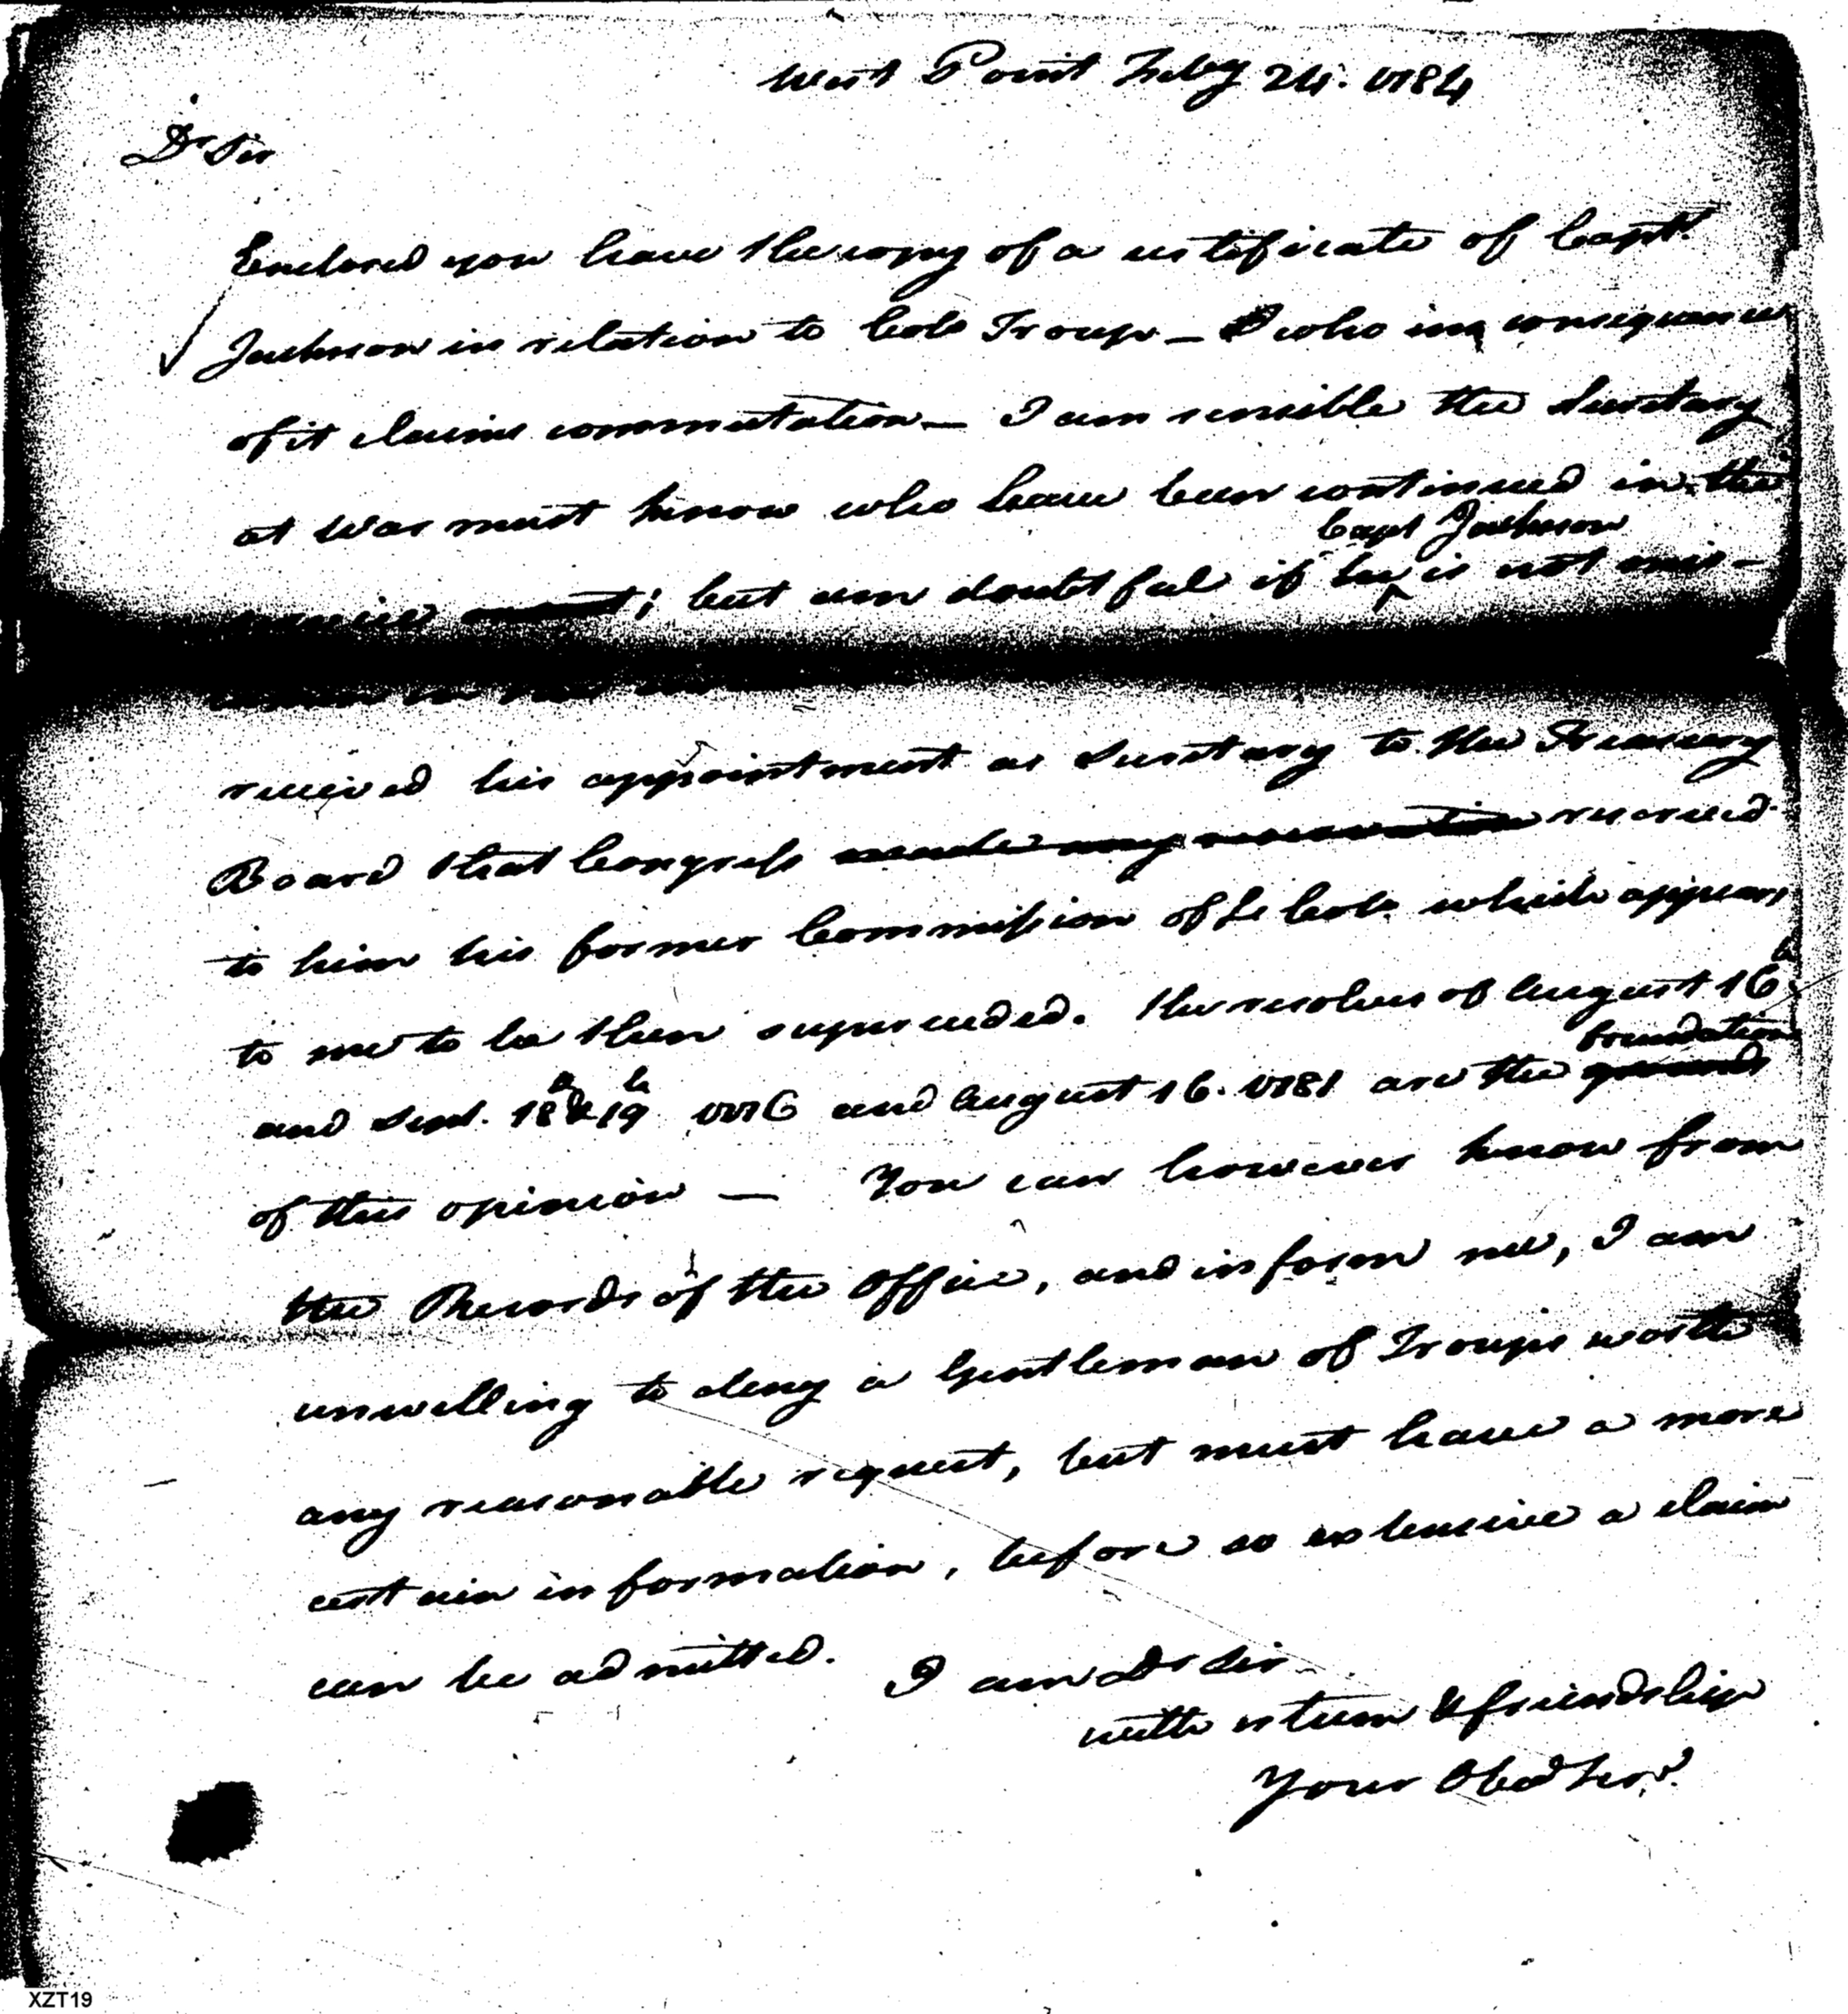 West Point Feby 24. 1784
Dr Sir
Enclosed you have the copy of a certificate of Capt.
Jackson in relation to Colo Troup — who in consequence
of it claims commutation — I am sensible the Secretary
at War must know who have been continued in the
Capt Jackson
service; but am doubtful if he is not mis-
received his appointment as Secretary to the Treasury
Board that Congress made any reservation reserved
to him his former Commission of Lt Colo. which appears
to me to be then superseded. The resolves of August 16th
foundation
and Sept. 18th & 19th 1776 and August 16. 1781 are the grounds
of this opinion — You can however know from
the Records of the Office, and inform me, I am
unwilling to deny a Gentleman of Troups worth
any reasonable request, but must have a more
certain information, before so extensive a claim
can be admitted. I am Dr Sir
with esteem & friendship
Your Obed Servt
XZT19